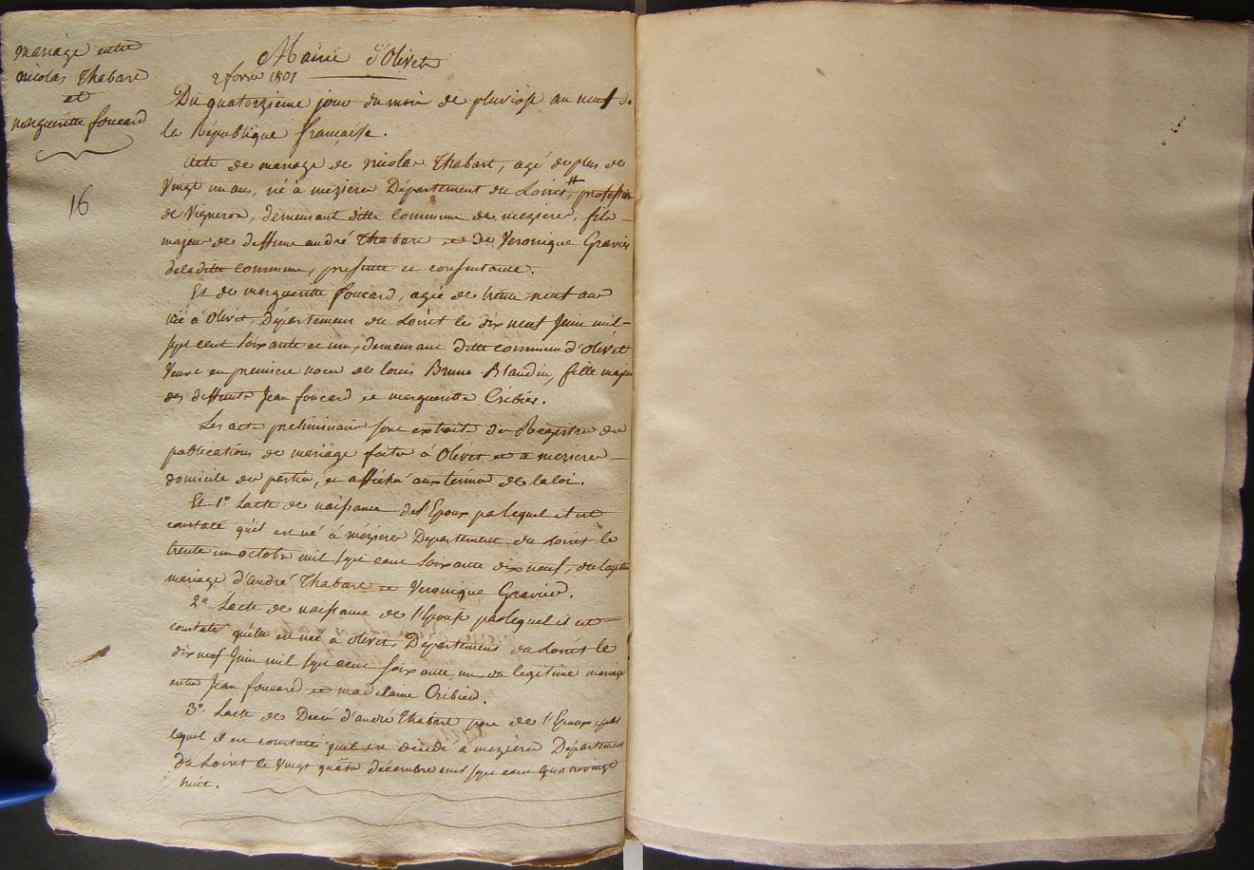 mariage entre
nicolas Thabare
et
margueritte foucard
16
Mairie d'Olivet
2 fevrier 1801
Du quatorzieme jour du mois de pluviose an neuf de
la République française.
Acte de mariage de nicolas Thabare, agé de plus de
Vingt un ans, né à mezieres Département du Loiret, profession
de Vigneron, demeurant ditte commune de mezieres, fils
majeur de deffunt andré Thabare et de Veronique Gravier
de laditte commune, presente et consentante.
Et de margueritte foucard, agée de trente neuf ans
née à Olivet, Département du Loiret le dix neuf Juin mil
sept cent soixante et un, demeurant ditte commune d'Olivet
Veuve en premiere noce de louis Bruno Blandin, fille majeure
des deffunts Jean foucard et margueritte Cribier.
Les actes preliminaires sont extraits des Registres des
publications de mariage faites à Olivet et à mezieres
domicile des parties, et affiché aux termes de la loi.
Et 1° Lacte de naissance de l'Epoux par lequel il est
constaté quil est né à mézieres Département du Loiret le
trente un octobre mil sept cent soixante dix neuf, du legitime
mariage d'andré Thabare et Veronique Gravier.
2° Lacte de naissance de l'Epouse par lequel il est
constaté quelle est née à olivet Département du Loiret le
dix neuf Juin mil sept cent soixante un du legitime mariage
entre Jean foucard et madelaine Cribier.
3° Lacte de Decès d'andré Thabare pere de l'Epoux, par
lequel il est constaté quil est décédé à mezieres Département
du Loiret le vingt quatre décembre mil sept cent quatrevingt
huit.